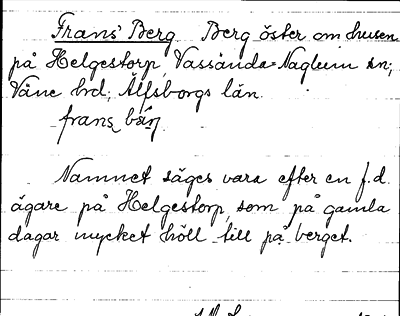 Frans' Berg Berg öster om husen
på Helgestorp, Vassända-Naglum sn;
Väne hd; Älfsborgs län.
Namnet säges vara efter en f.d.
ägare på Helgestorp, som på gamla
dagar mycket höll till på berget.